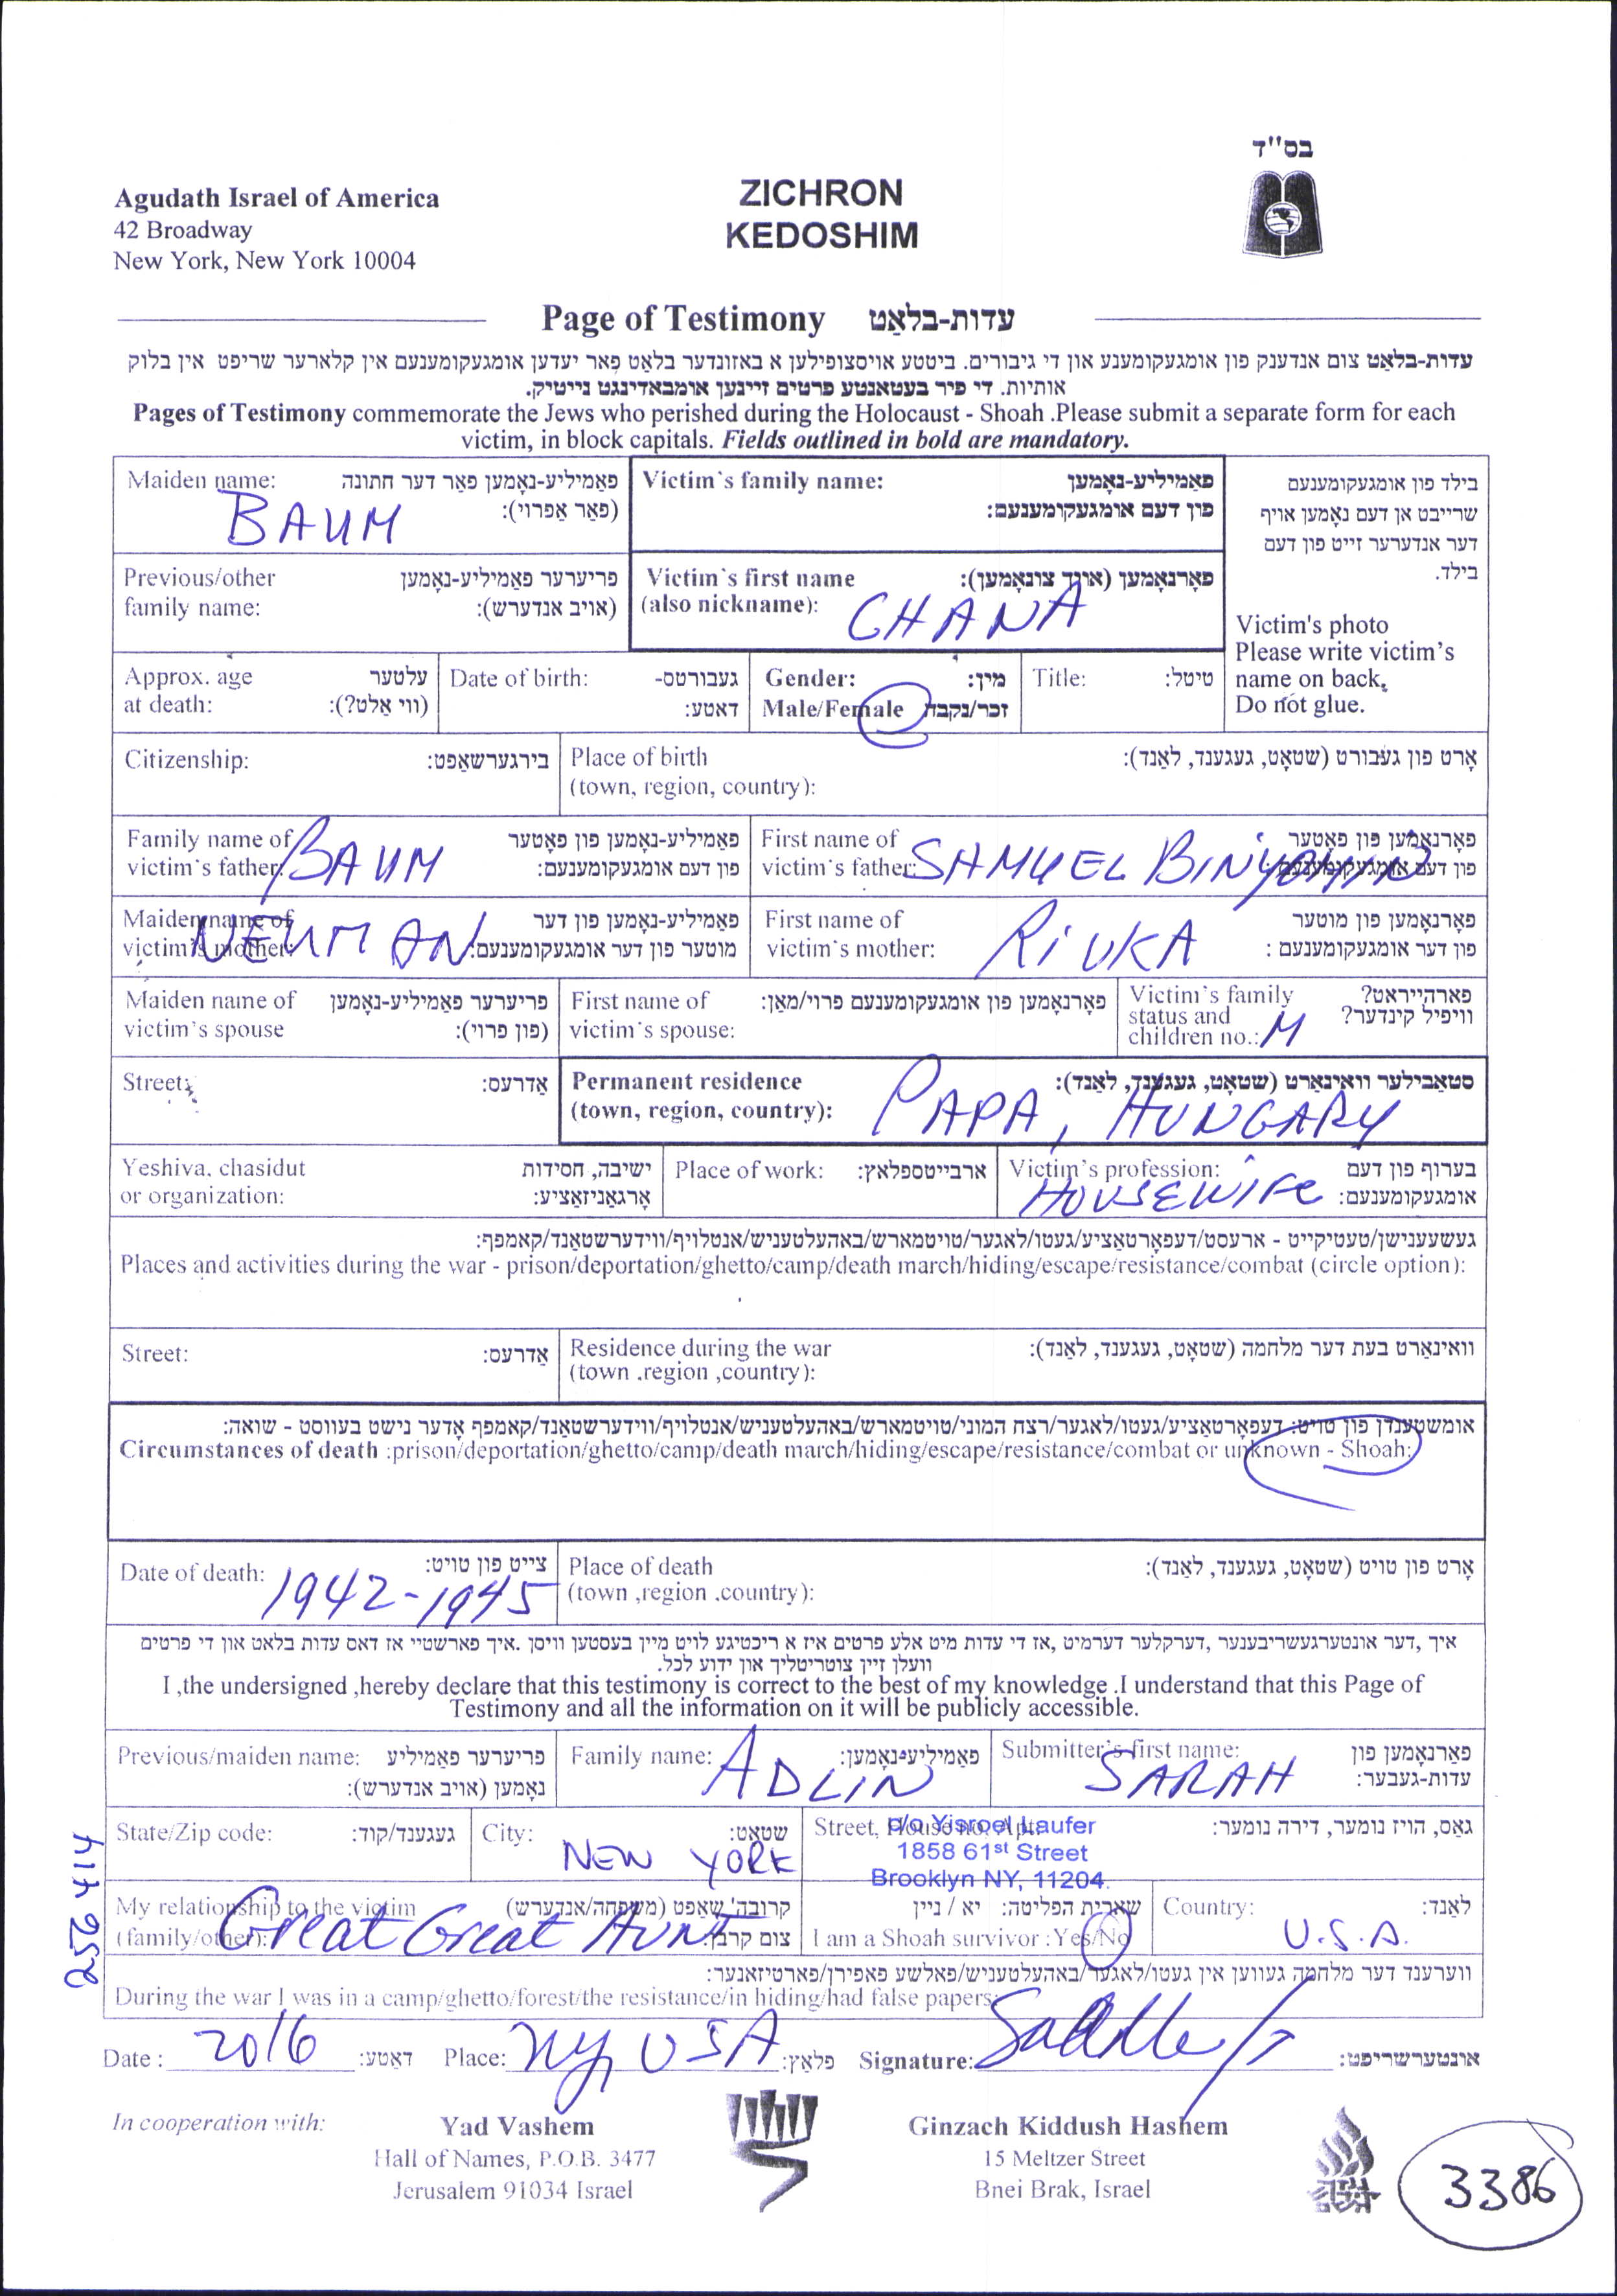 בס"ד
Agudath Israel of America
42 Broadway
New York, New York 10004
ZICHRON
KEDOSHIM
Page of Testimony עדות-בלאַט
עדות-בלאַט צום אנדענק פון אומגעקומענע און די גיבורים. ביטטע אויסצופילען א באזונדער בלאט פאר יעדען אומגעקומענעם אין קלארער שריפט אין בלוק
אותיות. די פיר בעטאנטע פרטים זיינען אומבאדינגט נייטיק.
Pages of Testimony commemorate the Jews who perished during the Holocaust - Shoah .Please submit a separate form for each
victim, in block capitals. Fields outlined in bold are mandatory.
Maiden name: פאַמיליע-נאָמען פאַר דער חתונה
(פאַר אַפרוי):
BAUM
Victim's family name: פאַמיליע-נאָמען
פון דעם אומגעקומענעם:
בילד פון אומגעקומענעם
שרייבט אן דעם נאָמען אויף
דער אנדערער זייט פון דעם
בילד.
Victim's photo
Please write victim's
name on back.
Do not glue.
Previous/other פריערער פאַמיליע-נאָמען
family name: (אויב אנדערש):
Victim's first name פאָרנאָמען (אויך צונאָמען):
(also nickname): CHANA
Approx. age עלטער
at death: (ווי אַלט?):
Date of birth: געבורטס-
דאטע:
Gender: מין:
Male/Female זכר/נקבה
Title: טיטל:
Citizenship: בירגערשאַפט:
Place of birth אָרט פון געבורט (שטאָט, געגענד, לאַנד):
(town, region, country):
Family name of פאַמיליע-נאָמען פון פאָטער
victim's father: פון דעם אומגעקומענעם:
BAUM
First name of פאָרנאָמען פון פאָטער
victim's father: פון דעם אומגעקומענעם:
SAMUEL BINYOMIN
Maiden name of פאַמיליע-נאָמען פון דער
victim's mother: מוטער פון דער אומגעקומענעם:
NEUMAN
First name of פאָרנאָמען פון מוטער
victim's mother: פון דער אומגעקומענעם :
RIVKA
Maiden name of פריערער פאַמיליע-נאָמען
victim's spouse (פון פרוי):
First name of פאָרנאָמען פון אומגעקומענעם פרוי/מאַן:
victim's spouse:
Victim's family פארהייראט?
status and וויפיל קינדער?
children no.: M
Street: אַדרעס:
Permanent residence סטאַבילער וואוינאָרט (שטאָט, געגענד, לאַנד):
(town, region, country): PAPA, HUNGARY
Yeshiva, chasidut ישיבה, חסידות
or organization: אָרגאַניזאַציע:
Place of work: ארבייטספלאץ:
Victim's profession: בערוף פון דעם
אומגעקומענעם:
HOUSEWIFE
געשעענישן/טעטיקייט - ארעסט/דעפאָרטאַציע/געטו/לאגער/טויטמארש/באהעלטעניש/אנטלויף/ווידערשטאַנד/קאמפף:
Places and activities during the war - prison/deportation/ghetto/camp/death march/hiding/escape/resistance/combat (circle option):
Street: אַדרעס:
Residence during the war וואוינאָרט בעת דער מלחמה (שטאָט, געגענד, לאַנד):
(town ,region ,country):
אומשטענדן פון טויט: דעפאָרטאַציע/געטו/לאגער/רצח המוני/טויטמארש/באהעלטעניש/אנטלויף/ווידערשטאַנד/קאמפף אָדער נישט בעווסט - שואה:
Circumstances of death :prison/deportation/ghetto/camp/death march/hiding/escape/resistance/combat or unknown - Shoah:
Date of death: צייט פון טויט:
1942-1945
Place of death אָרט פון טויט (שטאָט, געגענד, לאַנד):
(town ,region .country):
איך ,דער אונטערגעשריבענער ,דערקלער דערמיט ,אז די עדות מיט אלע פרטים איז א ריכטיגע לויט מיין בעסטען וויסן .איך פארשטיי אז דאס עדות בלאט און די פרטים
וועלן זיין צוטריטליך און ידוע לכל.
I ,the undersigned ,hereby declare that this testimony is correct to the best of my knowledge .I understand that this Page of
Testimony and all the information on it will be publicly accessible.
Previous/maiden name: פריערער פאַמיליע
נאָמען (אויב אנדערש):
Family name: פאַמיליע-נאָמען:
ADLIN
Submitter's first name: פאַרנאָמען פון
עדות-געבער:
SARAH
State/Zip code: געגענד/קוד:
City: שטאָט:
NEW YORK
Street, House no. Apt: גאַס, הויז נומער, דירה נומער:
c/o Yisroel Laufer
1858 61st Street
Brooklyn NY, 11204
My relationship to the victim קרובה'שאַפט (משפחה/אנדערש)
(family/other): צום קרבן
Great Great AUNT
שארית הפליטה: יא / ניין
I am a Shoah survivor :Yes/No
Country: לאַנד:
U.S.A.
ווערענד דער מלחמה געווען אין געטו/לאגער/באהעלטעניש/פאלשע פאפירן/פארטיזאנער:
During the war I was in a camp/ghetto/forest/the resistance/in hiding/had false papers:
Date : 2016 דאַטע: Place: NY, USA פלאַץ: Signature: אונטערשריפט:
252414
In cooperation with:
Yad Vashem
Hall of Names, P.O.B. 3477
Jerusalem 91034 Israel
Ginzach Kiddush Hashem
15 Meltzer Street
Bnei Brak, Israel
3386